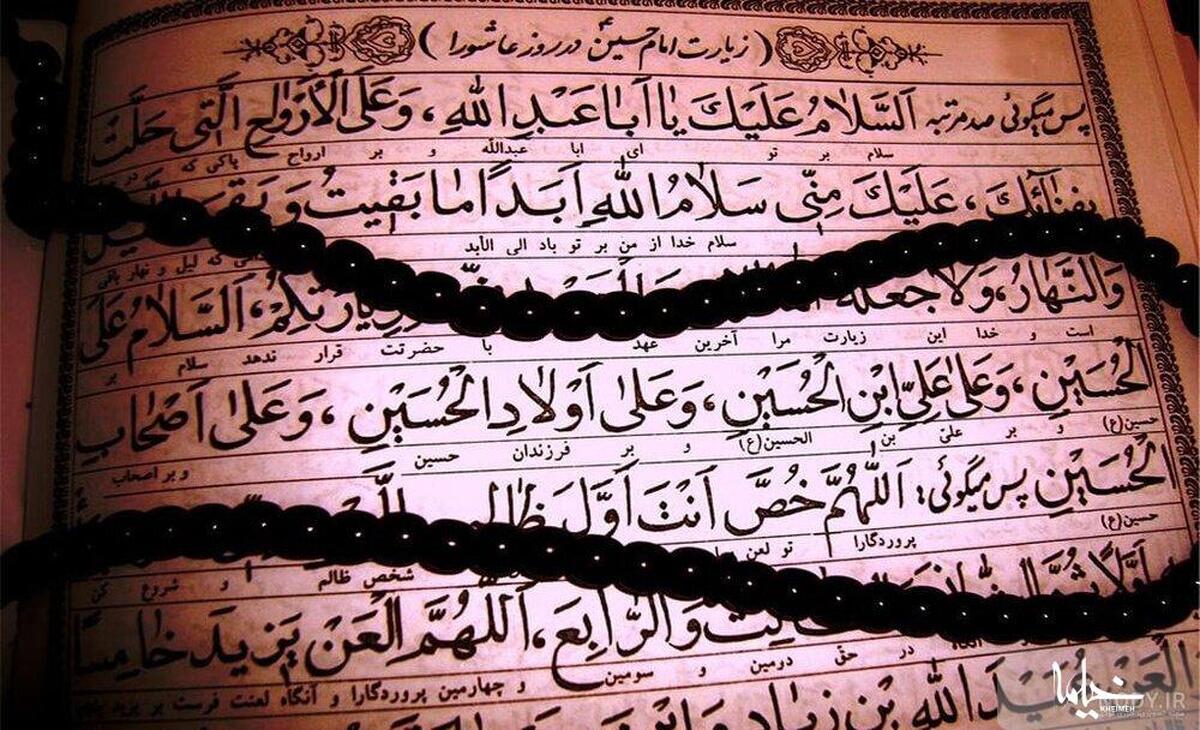 (زیارت امام حسین ع در روز عاشورا)
پس میگوئی صد مرتبه اَلسَّلامُ عَلَیْكَ یا اَبا عَبْدِ اللّٰهِ، وَعَلَى الْاَرْواحِ الَّتی حَلَّتْ
سلام بر تو ای ابا عبدالله و بر ارواح پاکی که در
بِفِنآئِكَ، عَلَیْكَ مِنّی سَلامُ اللّٰهِ اَبَدًا ما بَقیتُ وَ بَقِیَ
سلام خدا از من بر تو باد الی الأبد که لیل و نهار باقی
وَالنَّهارُ، وَلا جَعَلَهُ زِیارَتِکُمْ، اَلسَّلامُ عَلَى
است و خدا این زیارت مرا آخرین عهد با حضرتت قرار ندهد سلام بر
الْحُسَیْنِ، وَعَلى عَلِیِّ ابْنِ الْحُسَیْنِ، وَعَلىٰ اَوْلادِ الْحُسَیْنِ، وَعَلىٰ اَصْحابِ
حسین(ع) و بر علیّ بن الحسین(ع) و بر فرزندان حسین و بر اصحاب
الْحُسَیْنِ پس میگوئی: اَللّٰهُمَّ خُصَّ اَنْتَ اَوَّلَ ظالِمٍ
حسین(ع) پروردگارا تو لعن شخص ظالم و شروع کن
اَوَّلًا وَالرّابِعَ، اَللّٰهُمَّ الْعَنْ یَزیدَ خامِسًا
آنگاه در حقّ دومین و سومین و چهارمین پروردگارا و آنگاه لعنت فرست بر یزید پنجم
اللّٰهِ بْنَ زِیادٍ وَابْنَ
خیما
KHEIMEH